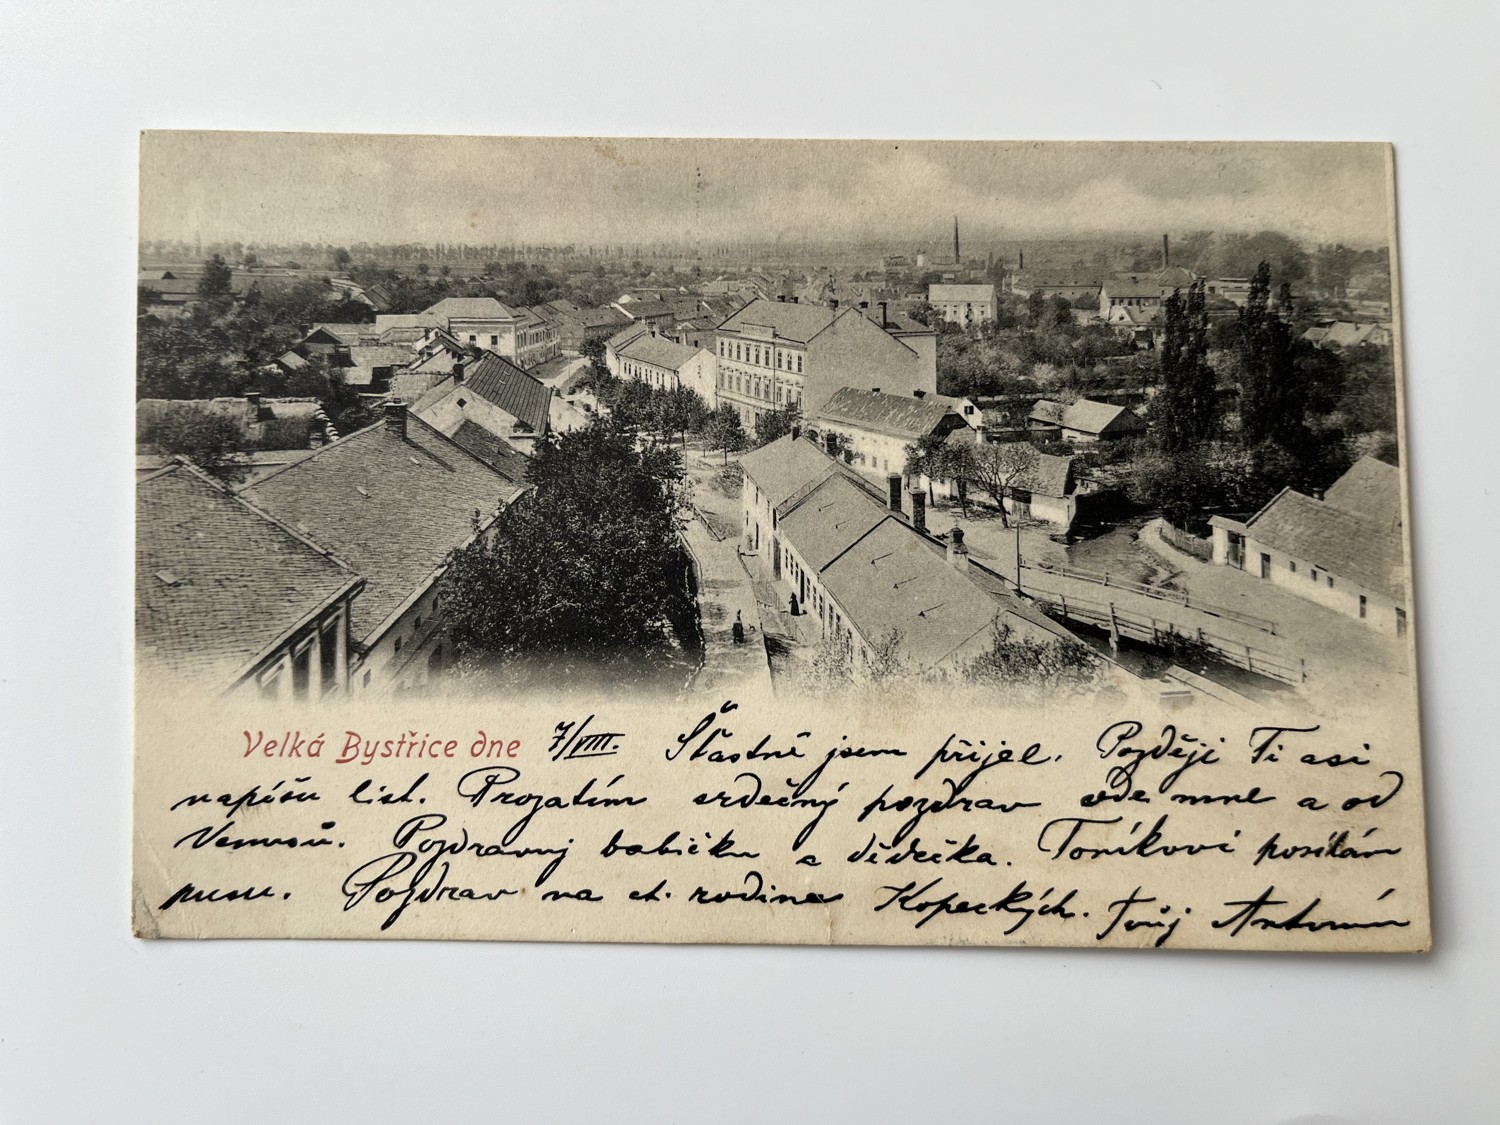 Velká Bystřice dne 7/VIII. Šťastně jsem přijel. Později Ti asi
napíšu list. Prozatím srdečný pozdrav ode mne a od
Pozdravuj babičku a dědečka. Toníkovi posílám
pusu. Pozdrav na ct. rodinu Kopeckých. Tvůj Antonín